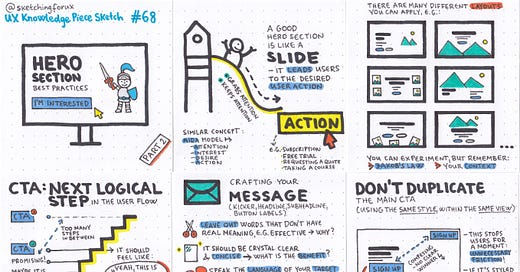 @sketchingforux
UX Knowledge Piece Sketch #68
HERO
SECTION
BEST PRACTICES
I'M INTERESTED
PART 2
A GOOD
HERO SECTION
IS LIKE A
SLIDE
– IT LEADS USERS
TO THE DESIRED
USER ACTION
GRABS ATTENTION
KEEPS ATTENTION
ACTION
SIMILAR CONCEPT:
AIDA MODEL
ATTENTION
INTEREST
DESIRE
ACTION
E.G. SUBSCRIPTION
FREE TRIAL
REQUESTING A QUOTE
TAKING A COURSE
THERE ARE MANY DIFFERENT LAYOUTS
YOU CAN APPLY, E.G.:
YOU CAN EXPERIMENT, BUT REMEMBER:
JAKOB'S LAW
YOUR CONTEXT
CTA: NEXT LOGICAL
STEP IN THE USER FLOW
CTA
TOO MANY
STEPS IN
BETWEEN
CTA
PROMISING!
MAYBE IT
IT SHOULD
FEEL LIKE:
THIS IS
CRAFTING YOUR
MESSAGE
(KICKER, HEADLINE, SUBHEADLINE,
BUTTON LABELS)
LEAVE OUT WORDS THAT DON'T HAVE
REAL MEANING, E.G. EFFECTIVE → WHY?
IT SHOULD BE CRYSTAL CLEAR
& CONCISE → WHAT IS THE BENEFIT?
SPEAK THE LANGUAGE OF YOUR TARGET
DON'T DUPLICATE
THE MAIN CTA
(USING THE SAME STYLE, WITHIN THE SAME VIEW)
SIGN UP
SIGN UP
– THIS STOPS
USERS FOR A
MOMENT:
UNNECESSARY
– IF IT'S STYLE